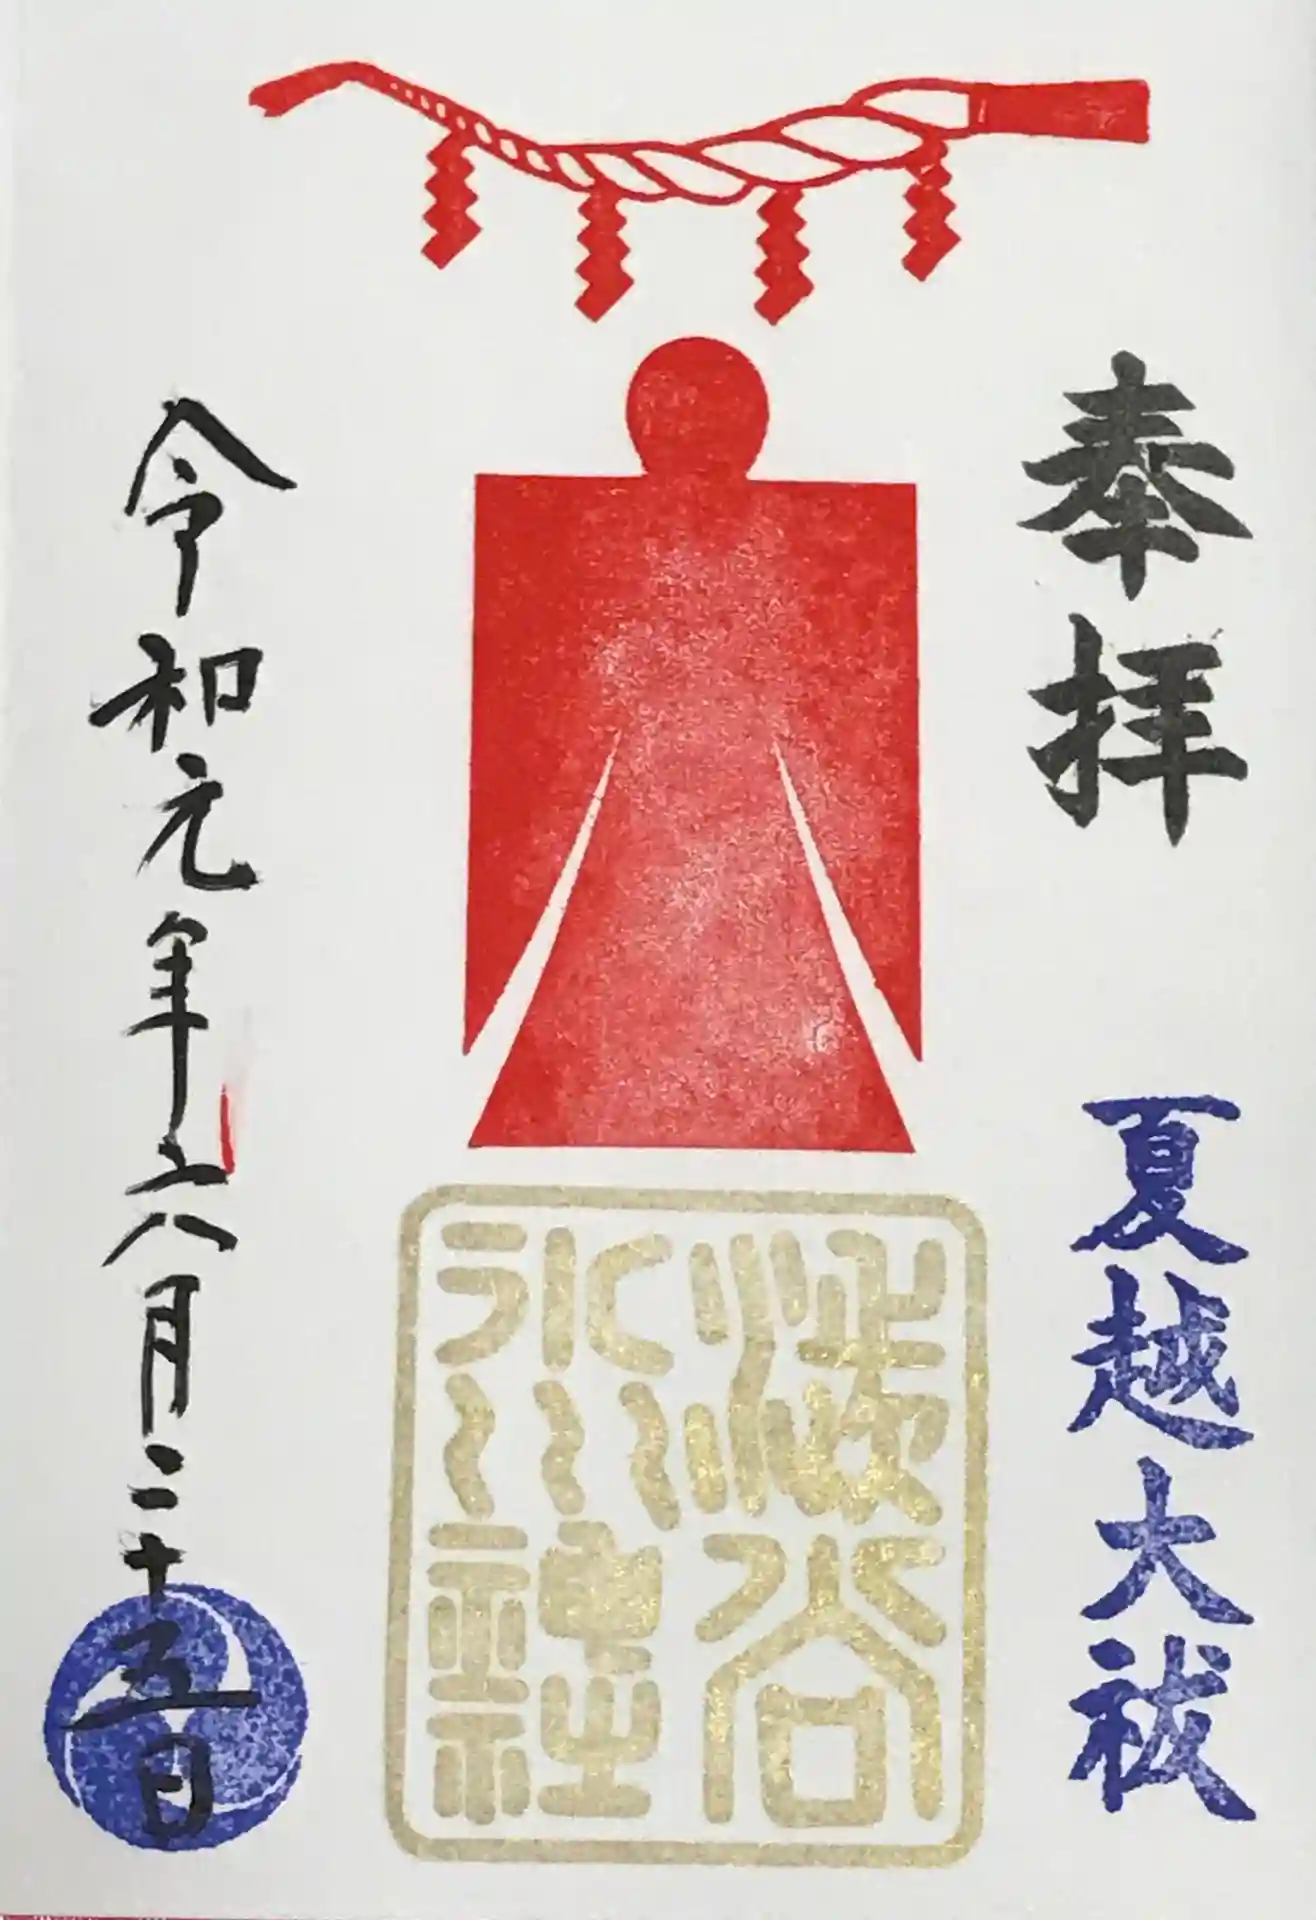 奉拝
夏越大祓
渋谷
氷川
神社
令和元年六月二十五日